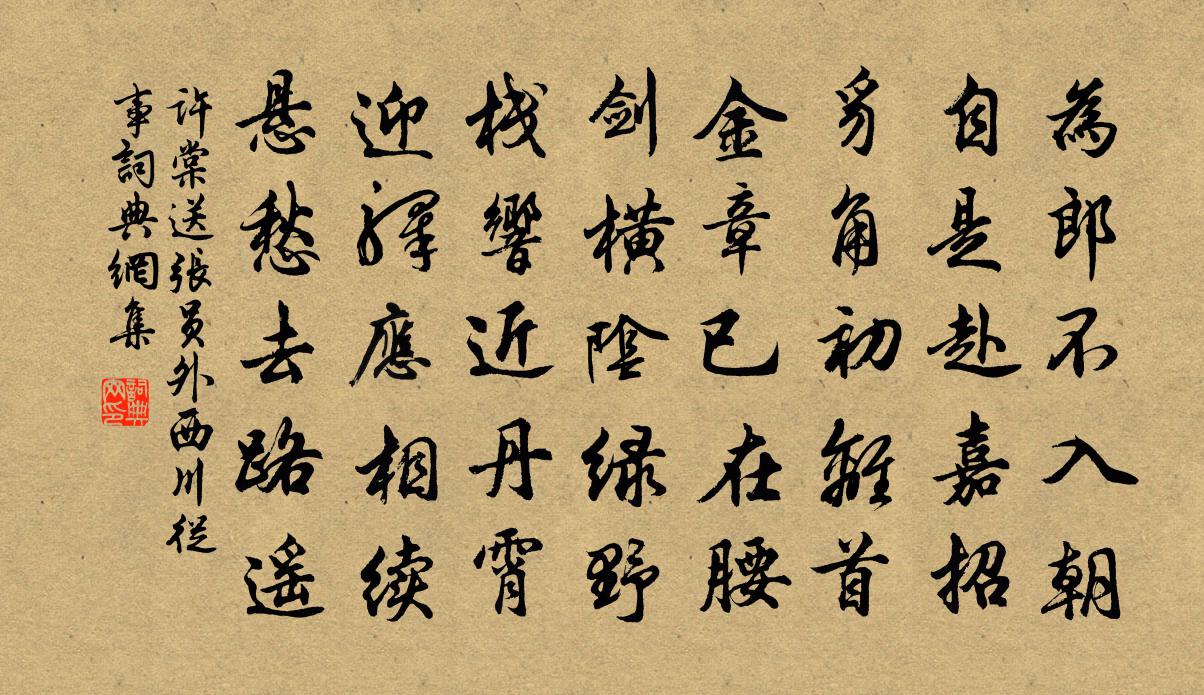 為郎不入朝
自是赴嘉招
豸角初離首
金章已在腰
剑橫陰绿野
栈響近丹霄
迎驛應相续
悬愁去路遥
許棠送張員外西川從
事詞典網集
詞典网印